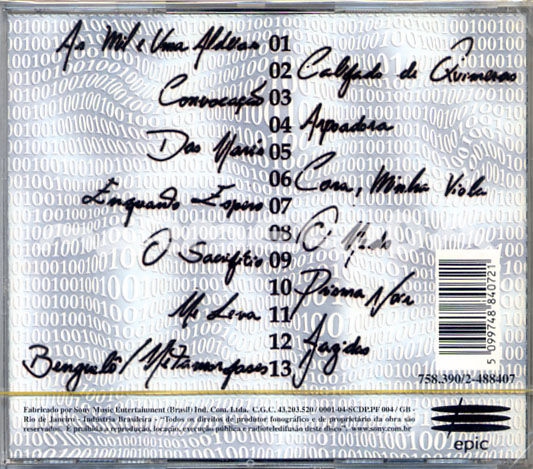 As Mil e Uma Aldeias 01
02 Califado de Quimeras
Convocação 03
04 Arpoadora
Das Marés 05
06 Cora, Minha Viola
Enquanto Espero 07
08 O Medo
O Sacrifício 09
10 Prisma Noir
Me Leva 11
12 Jazidas
Benguelô / Metamorfoses 13
5 099748 840721
758.390/2-488407
Fabricado por Sony Music Entertainment (Brasil) Ind. Com. Ltda. C.G.C. 43.203.520 / 0001-04-SCDP.PF 004 / GB -
Rio de Janeiro - Indústria Brasileira - "Todos os direitos de produtor fonográfico e de proprietário da obra são
reservados. É proibida a reprodução, locação, execução pública e radioteledifusão deste disco". www.sony.com.br
epic